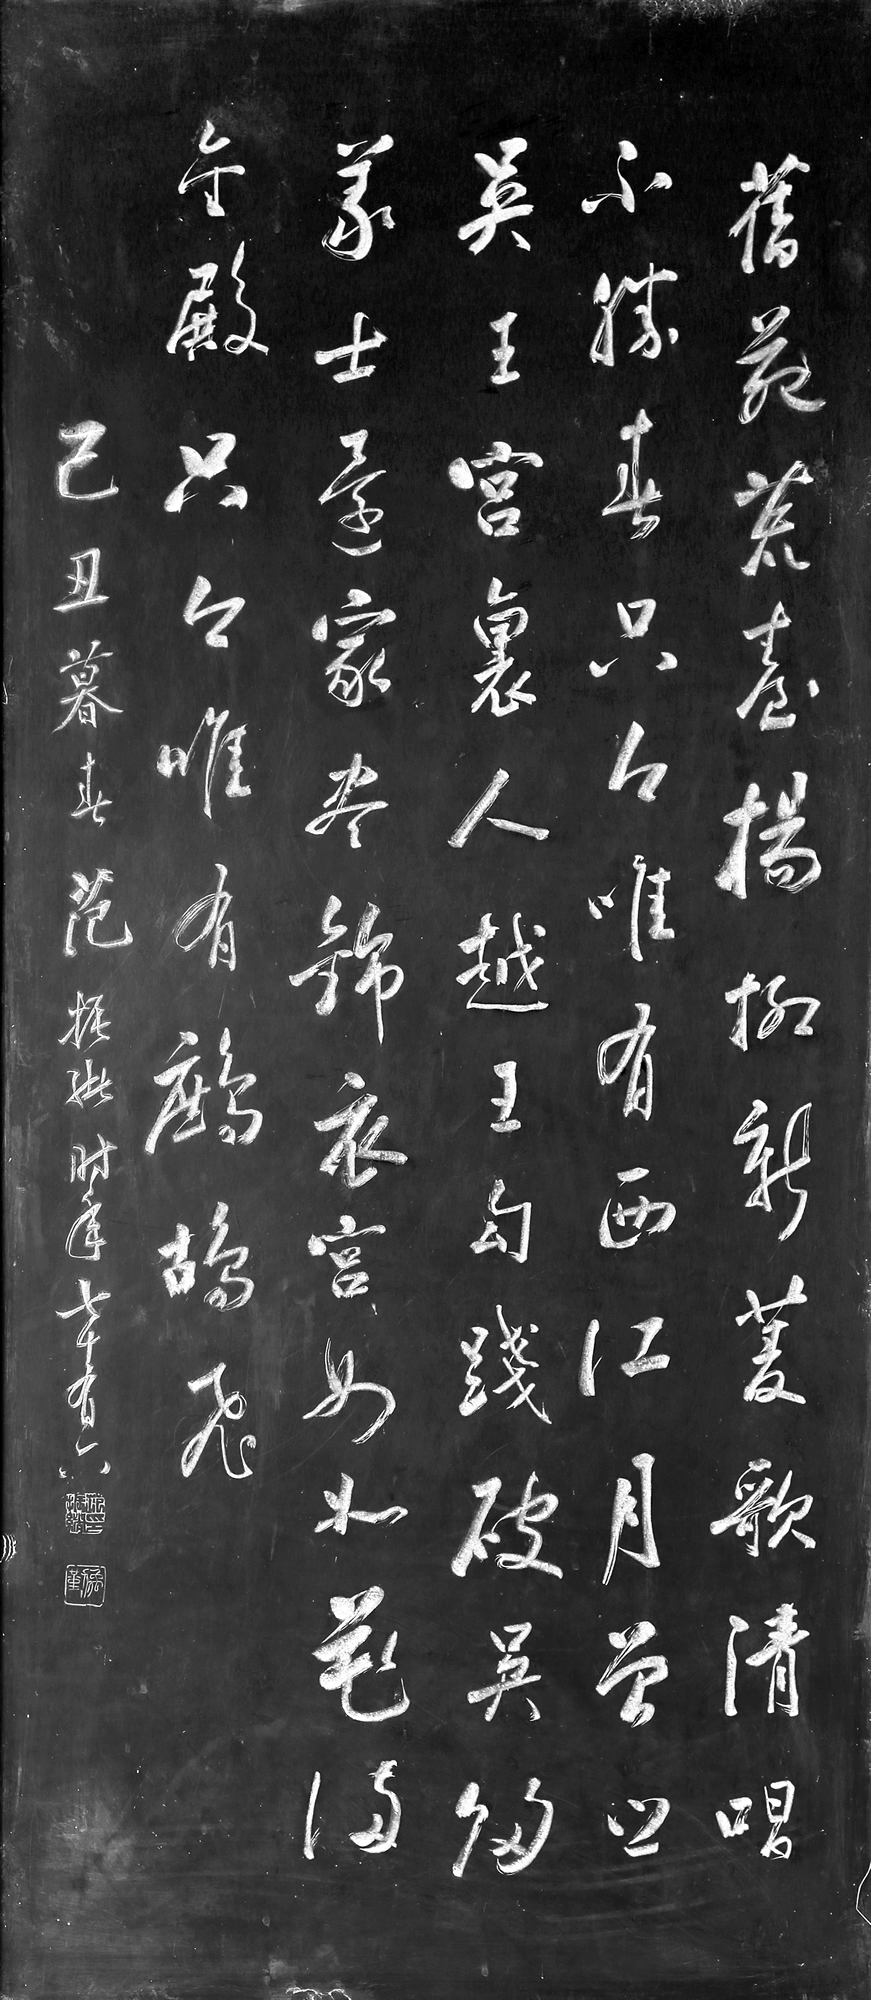 舊苑荒臺楊柳新菱歌清唱
不勝春只今唯有西江月曾照
吳王宮裏人越王勾踐破吳歸
義士還家尽錦衣宮女如花滿
金殿只今唯有鷓鴣飛
己丑暮春范振緒时年七十有六
范振緒印
禹勤